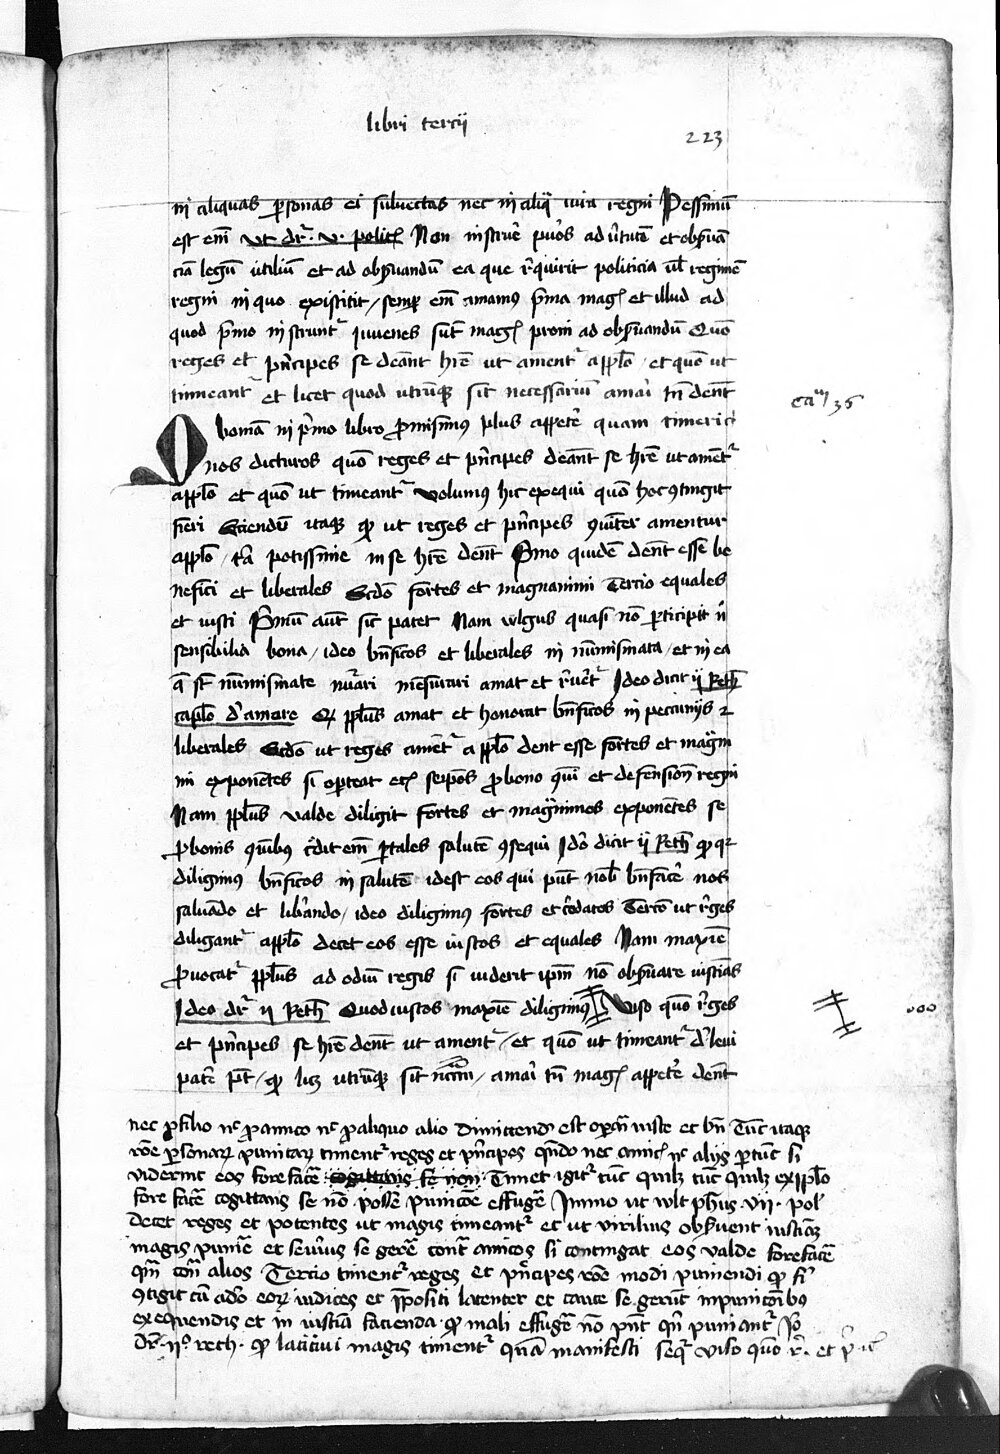 libri tercij
223
in aliquas psonas ei subiectas nec in aliq iura regni Pessimū
est eni ut dr̄ v politc Non instruē puos ad ututē et obsuā
ciā legū utiliū et ad obsuandū ea que rquirit politicia ul regimē
regni in quo existitit / semp em amamus pma mag et illud ad
quod pmo instrunt iuvenes sūt mag proni ad obsuandū Quō
reges et pncipes se deant hrē ut ament appĺo et quō ut
timeant et licet quod utrūq sit necessariū amai tn̄ dent
Cam 36
bonā in pmo libro pmisimus plus appete quam timeri
nos dicturos quō reges et pncipes deant se hrē ut amet
appĺo et quō ut timeant volumus hic exequi quō hoc 9tingit
fieri Sciendū itaq qp ut reges et pncipes 9uiter amentur
appĺo ita potissime in se hrē dent Pmo quidē dent esse be
nefici et liberales Scdō fortes et magnanimi Tercio equales
et iusti Pmū aūt sic patet Nam wlgus quasi nō pticipit n
sensibilia bona / ideo bn̄ficos et liberales in nūmismata / et in ea
q st nūmismate mesurari amat et ruet Ideo dicit ij Reth
capĺo d amore Q ppĺus amat et honorat bn̄ficos in peccunijs 2
liberales Scdō ut reges amet appĺo dent esse fortes et magni
mi exponetes si opteat etc seipos p bono qui et defension regni
Nam ppĺus valde diligit fortes et magnimos exponetes se
p bonis quibus cdit em ptales salutē 9sequi Idō dicit ij Reth qp qr
diligimus bn̄ficos in salutē idest eos qui pūt nob bn̄facē nos
saluādo et libando / ideo diligimus fortes et cordatos Tercō ut rges
diligant appĺo decet eos esse iustos et equales Nam maxīe
puocat ppĺus ad odiū regis si uiderit ipm nō obsuare iusticias
Ideo dr̄ ij Reth Quod iustos maxīe diligimus Viso quō rges
et pncipes se hrē dent ut ament / et quō ut timeant d leui
patē pt / qp licz utrūq sit nccm / amai tn̄ mag appete dent
nec p filio nc p amico nc p aliquo alio dimittend est opan iuste et bn̄ Tūc itaq
rōe psonar punitar timent reges et pncipes qn̄do nec amic nc alijs ptūc si
viderint eos forefacē cogittans se non Timet igit tūc quilz tūc quilz ex ppĺo
forefacē cogittans se nō posse punicōe effugē Immo ut wlt phus vij pol
decet reges et potentes ut magis timeant et ut virilius obsuent iusticiā
magis punire et seuius se gerē cont amicos si contingat eos valde forefacē
qm con alios Tercio timent reges et pncipes rōe modi puniendi qp fi
9tigit cū ad eor iudices et ppositi latenter et caute se gerūt in punicōibus
exequendis et in iusticia facienda qp mali effugē nō pnt qn puniant Iō
dr̄ ij reth qp latitiui magis timent quā manifesti seq viso quō r et p